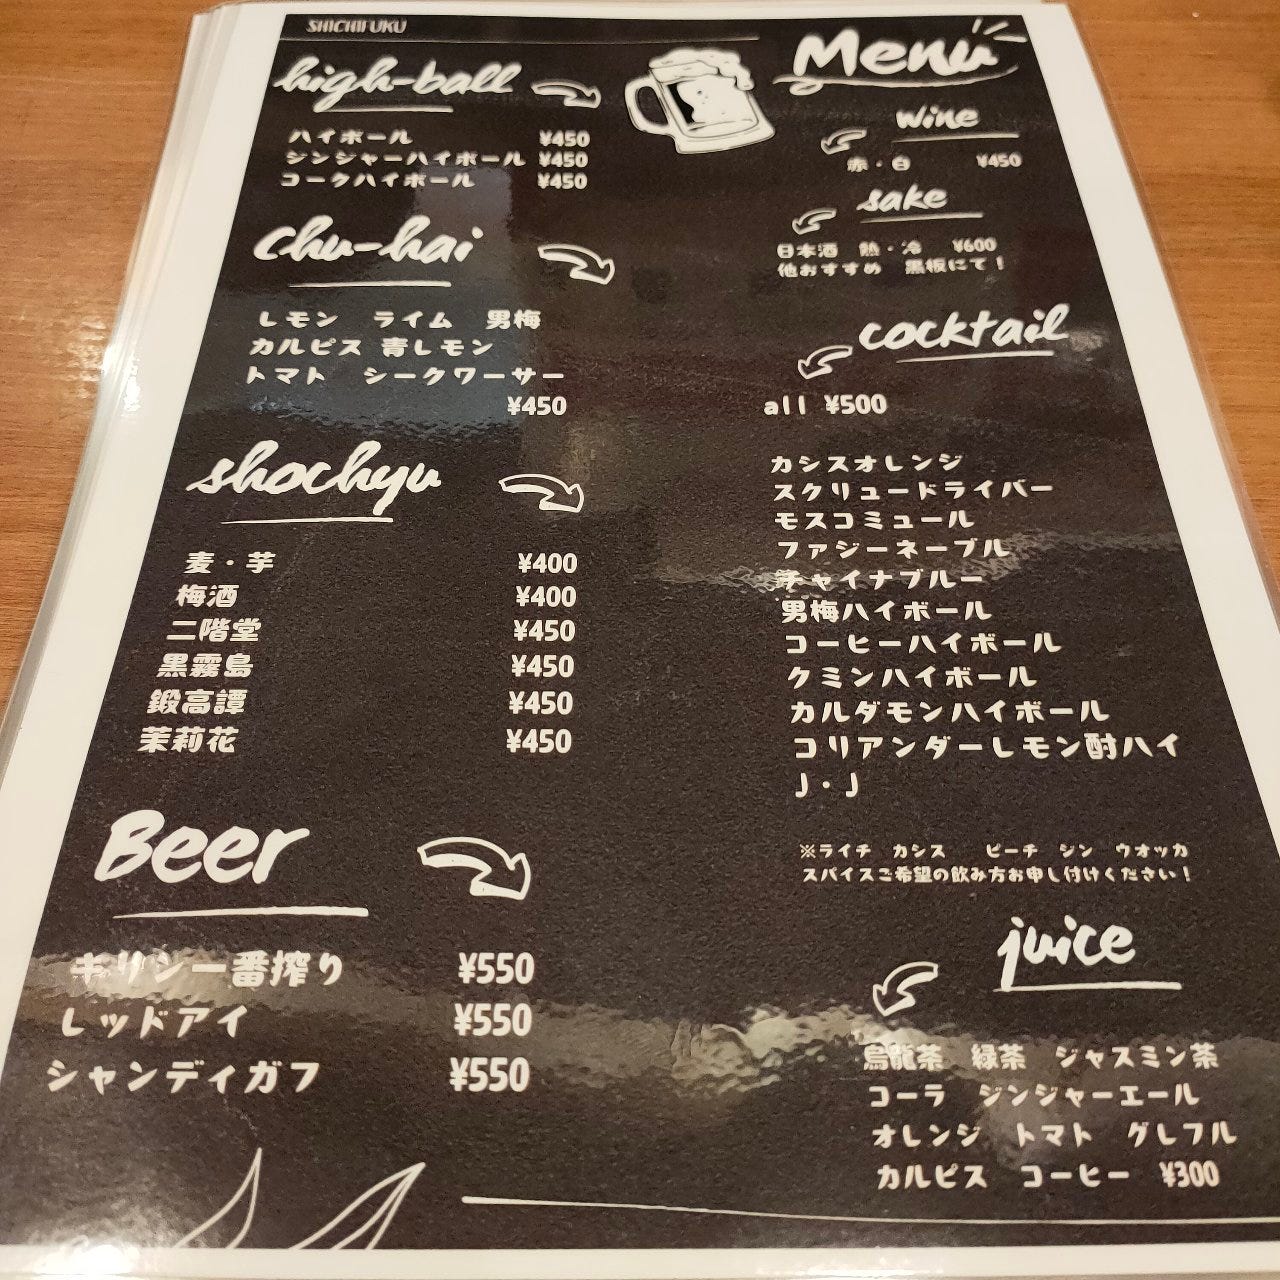 SHICHIFUKU
high-ball
ハイボール ¥450
ジンジャーハイボール ¥450
コークハイボール ¥450
chu-hai
レモン ライム 男梅
カルピス 青レモン
トマト シークワーサー
¥450
shochyu
麦・芋 ¥400
梅酒 ¥400
二階堂 ¥450
黒霧島 ¥450
鍛高譚 ¥450
茉莉花 ¥450
Beer
キリン一番搾り ¥550
レッドアイ ¥550
シャンディガフ ¥550
Menu
wine
赤・白 ¥450
sake
日本酒 熱・冷 ¥600
他おすすめ 黒板にて!
cocktail
all ¥500
カシスオレンジ
スクリュードライバー
モスコミュール
ファジーネーブル
チャイナブルー
男梅ハイボール
コーヒーハイボール
クミンハイボール
カルダモンハイボール
コリアンダーレモン酎ハイ
J・J
※ライチ カシス ピーチ ジン ウオッカ
スパイスご希望の飲み方お申し付けください!
juice
烏龍茶 緑茶 ジャスミン茶
コーラ ジンジャーエール
オレンジ トマト グレフル
カルピス コーヒー ¥300